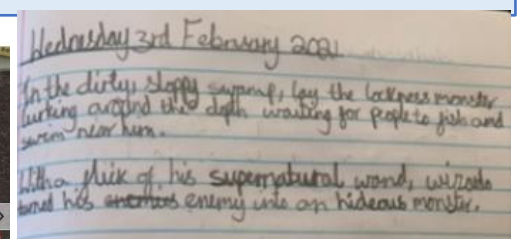 Wednesday 3rd February 2021
In the dirty, sloppy swamp, lay the lockness monster
lurking around the depth waiting for people to fish and
swim near him.
With a flick of his supernatural wand, wizard
turned his enemy into an hideous monster.